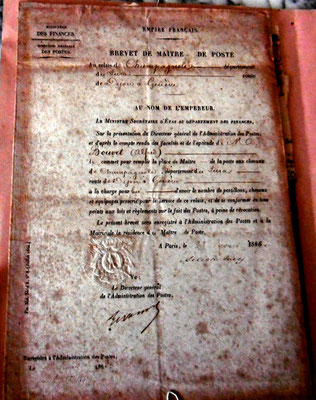 MINISTÈRE
DES FINANCES.
DIRECTION GÉNÉRALE
DES POSTES.
EMPIRE FRANÇAIS.
BREVET DE MAÎTRE DE POSTE
Au relais de Champagnole département
du Jura route
de Lyon à Genève
AU NOM DE L'EMPEREUR.
LE MINISTRE SECRÉTAIRE D'ÉTAT AU DÉPARTEMENT DES FINANCES,
Sur la présentation du Directeur général de l'Administration des Postes,
et d'après le compte rendu des facultés et de l'aptitude de M.
Bouvet
commet pour remplir la place de Maître de la poste aux chevaux
de Champagnole, département du Jura
route de Lyon à Genève
à la charge par d'avoir le nombre de postillons, chevaux
et équipages prescrit pour le service de ce relais, et de se conformer en tous
points aux lois et règlements sur le fait des Postes, à peine de révocation.
Le présent brevet sera enregistré à l'Administration des Postes et à la
Matricule la résidence Maître de Poste.
A Paris, le 186
Le Directeur général
de l'Administration des Postes,
Enregistré à l'Administration des Postes,
Le 186